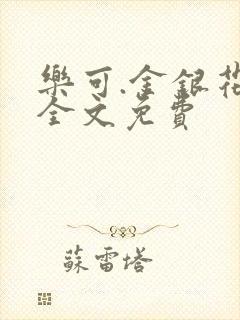 樂可.金銀花
全文免費
蘇雷塔